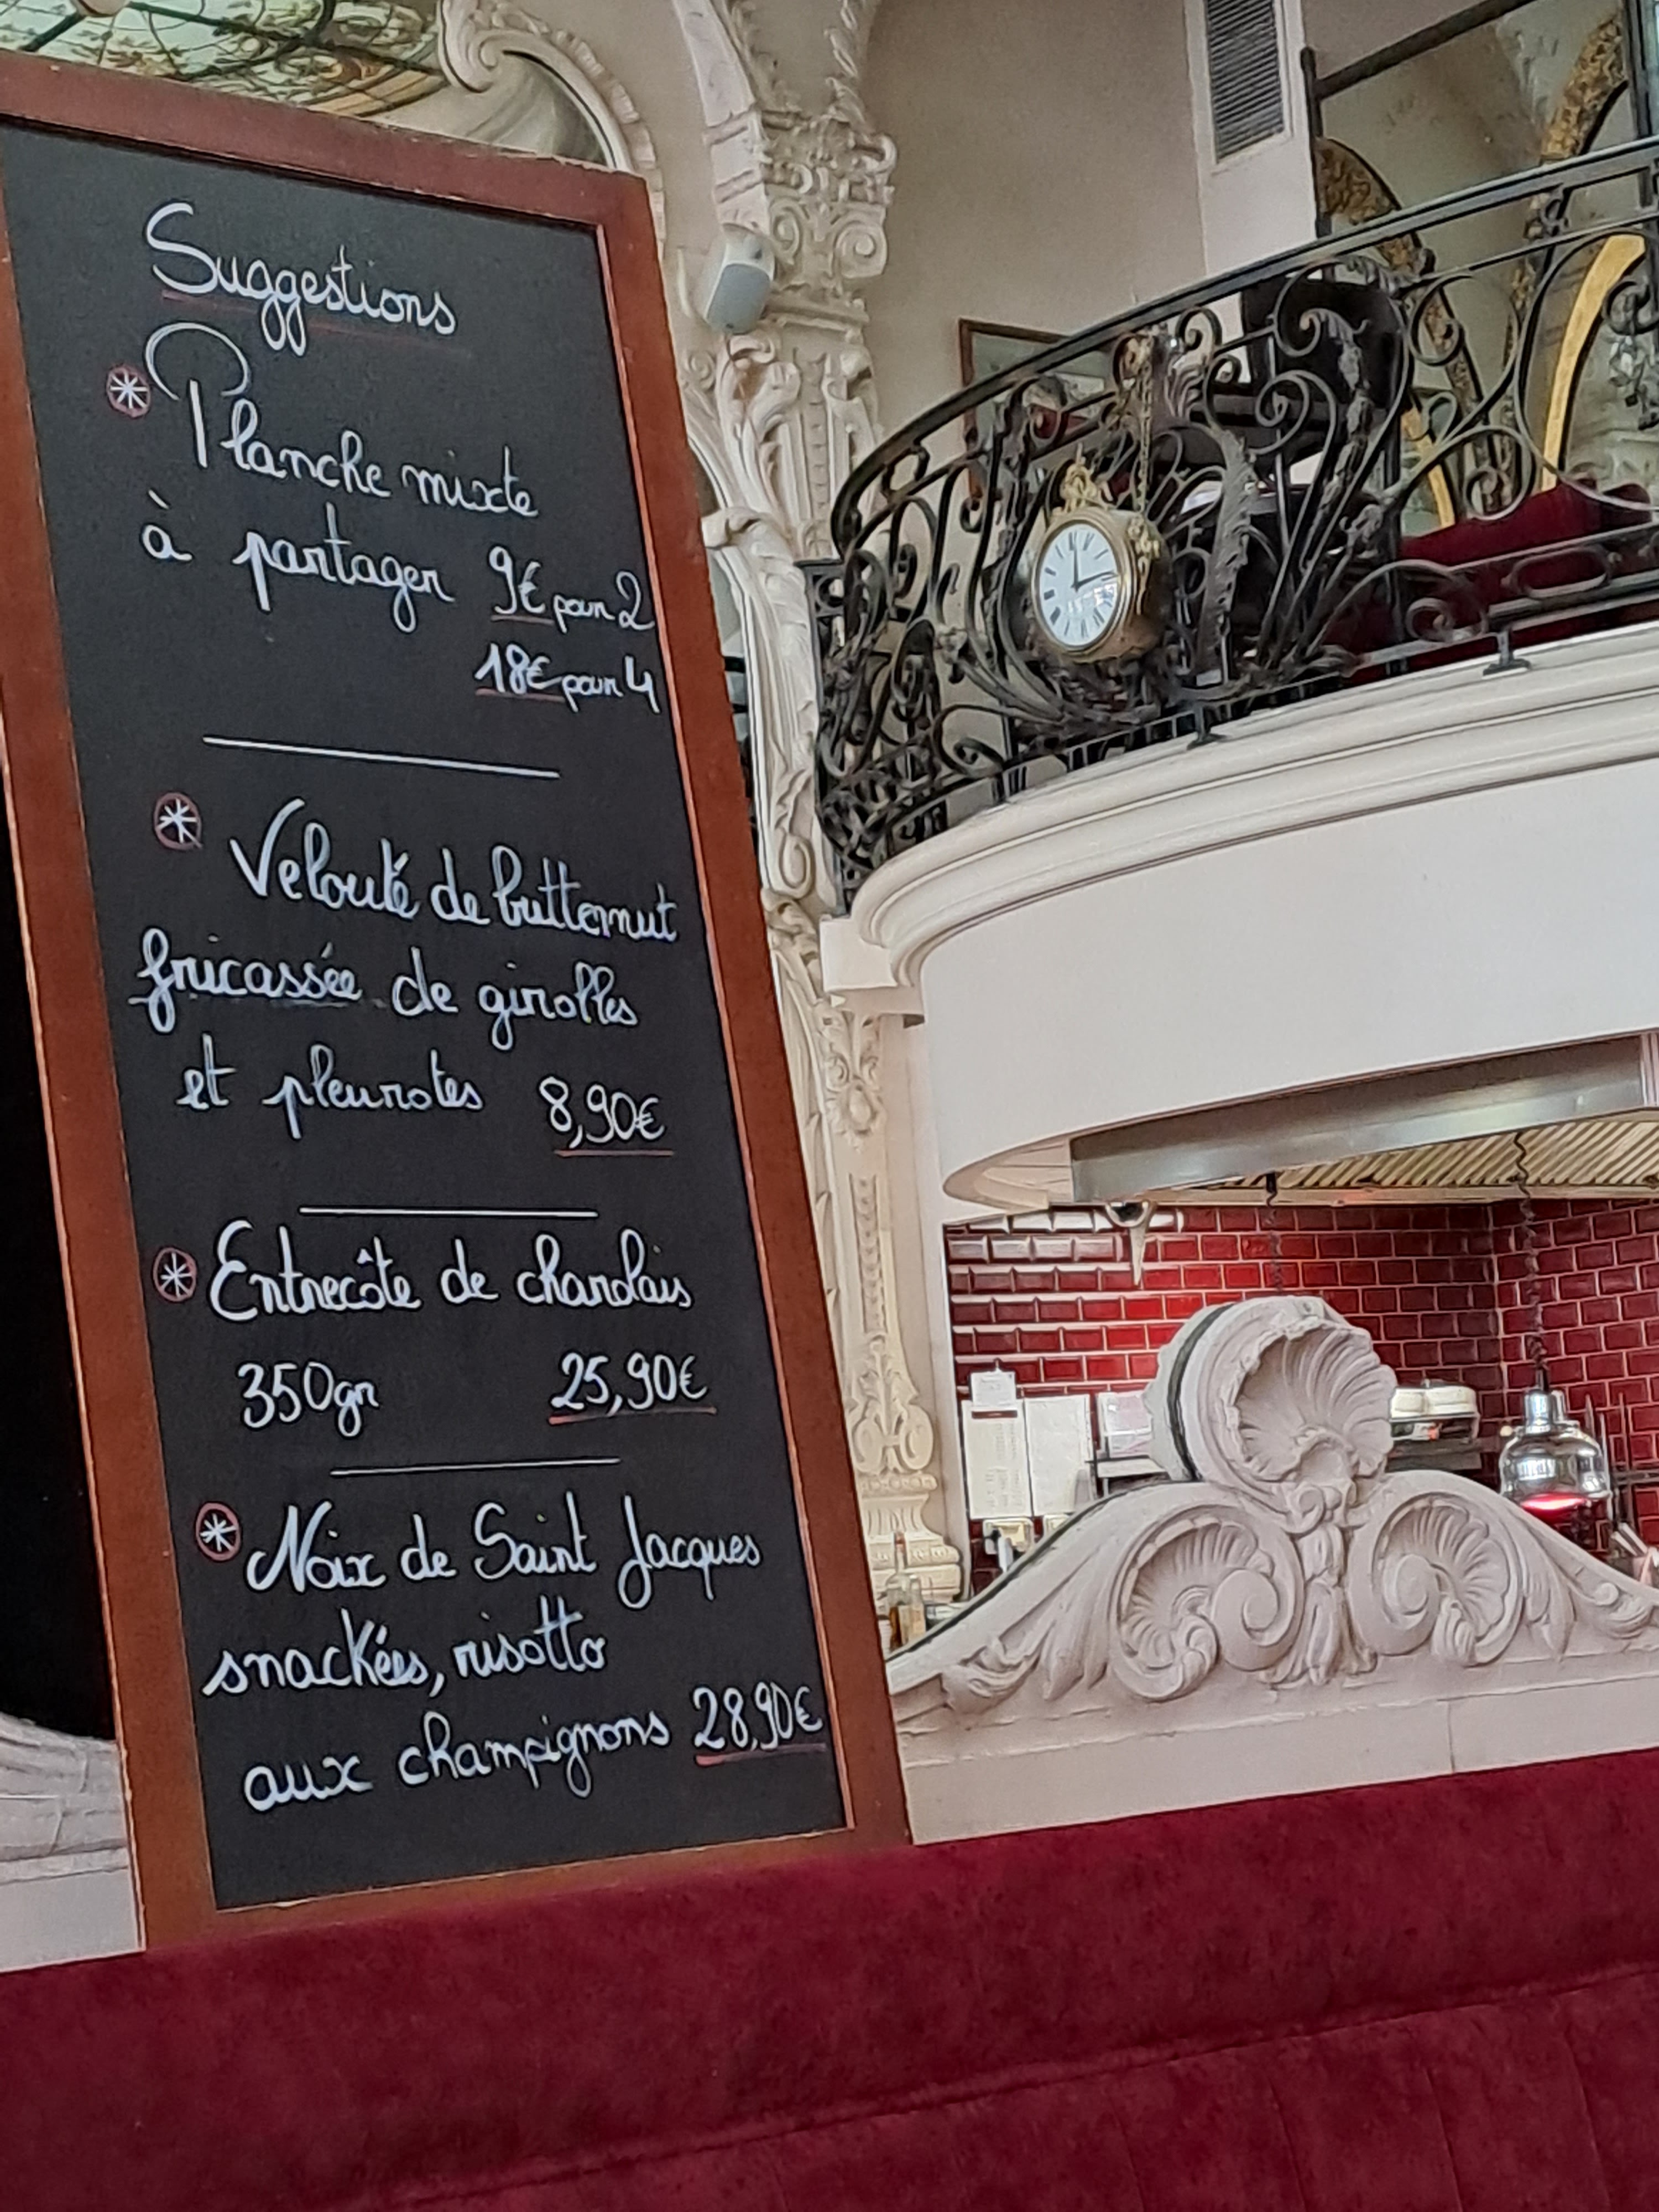 Suggestions
Planche mixte
à partager 9€ pour 2
18€ pour 4
Velouté de butternut
fricassée de girolles
et pleurotes 8,90€
Entrecôte de charolais
350gr 25,90€
Noix de Saint Jacques
snackées, risotto
aux champignons 28,90€